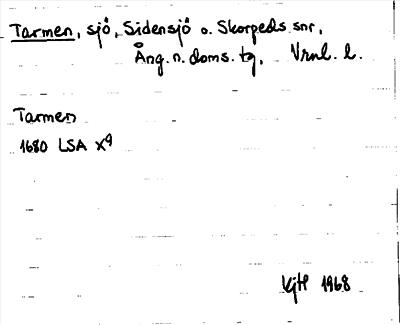 Tarmen, sjö, Sidensjö o. Skorpeds snr,
Ång. n. doms. tg, Vrnl. l.
Tarmen
1680 LSA X9
KjH 1968